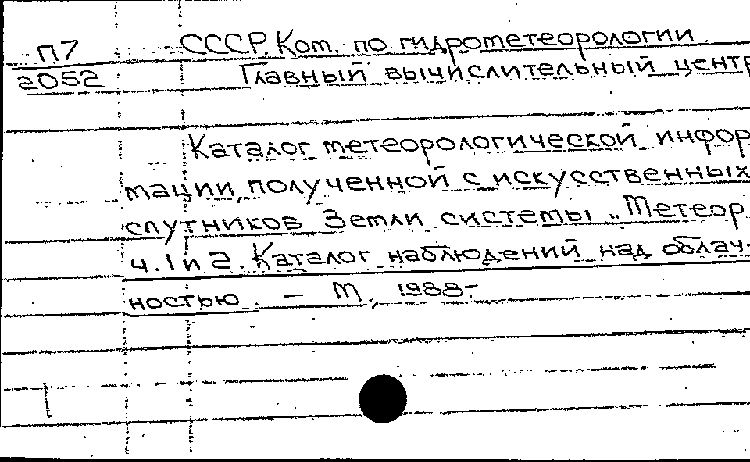 П7 СССР. Ком. по гидрометеорологии
2052 Главный вычислительный центр
Каталог метеорологической инфор
мации, полученной с искусственных
спутников Земли системы „Метеор
ч. 1 и 2. Каталог наблюдений над облач-
ностью. – М, 1988-